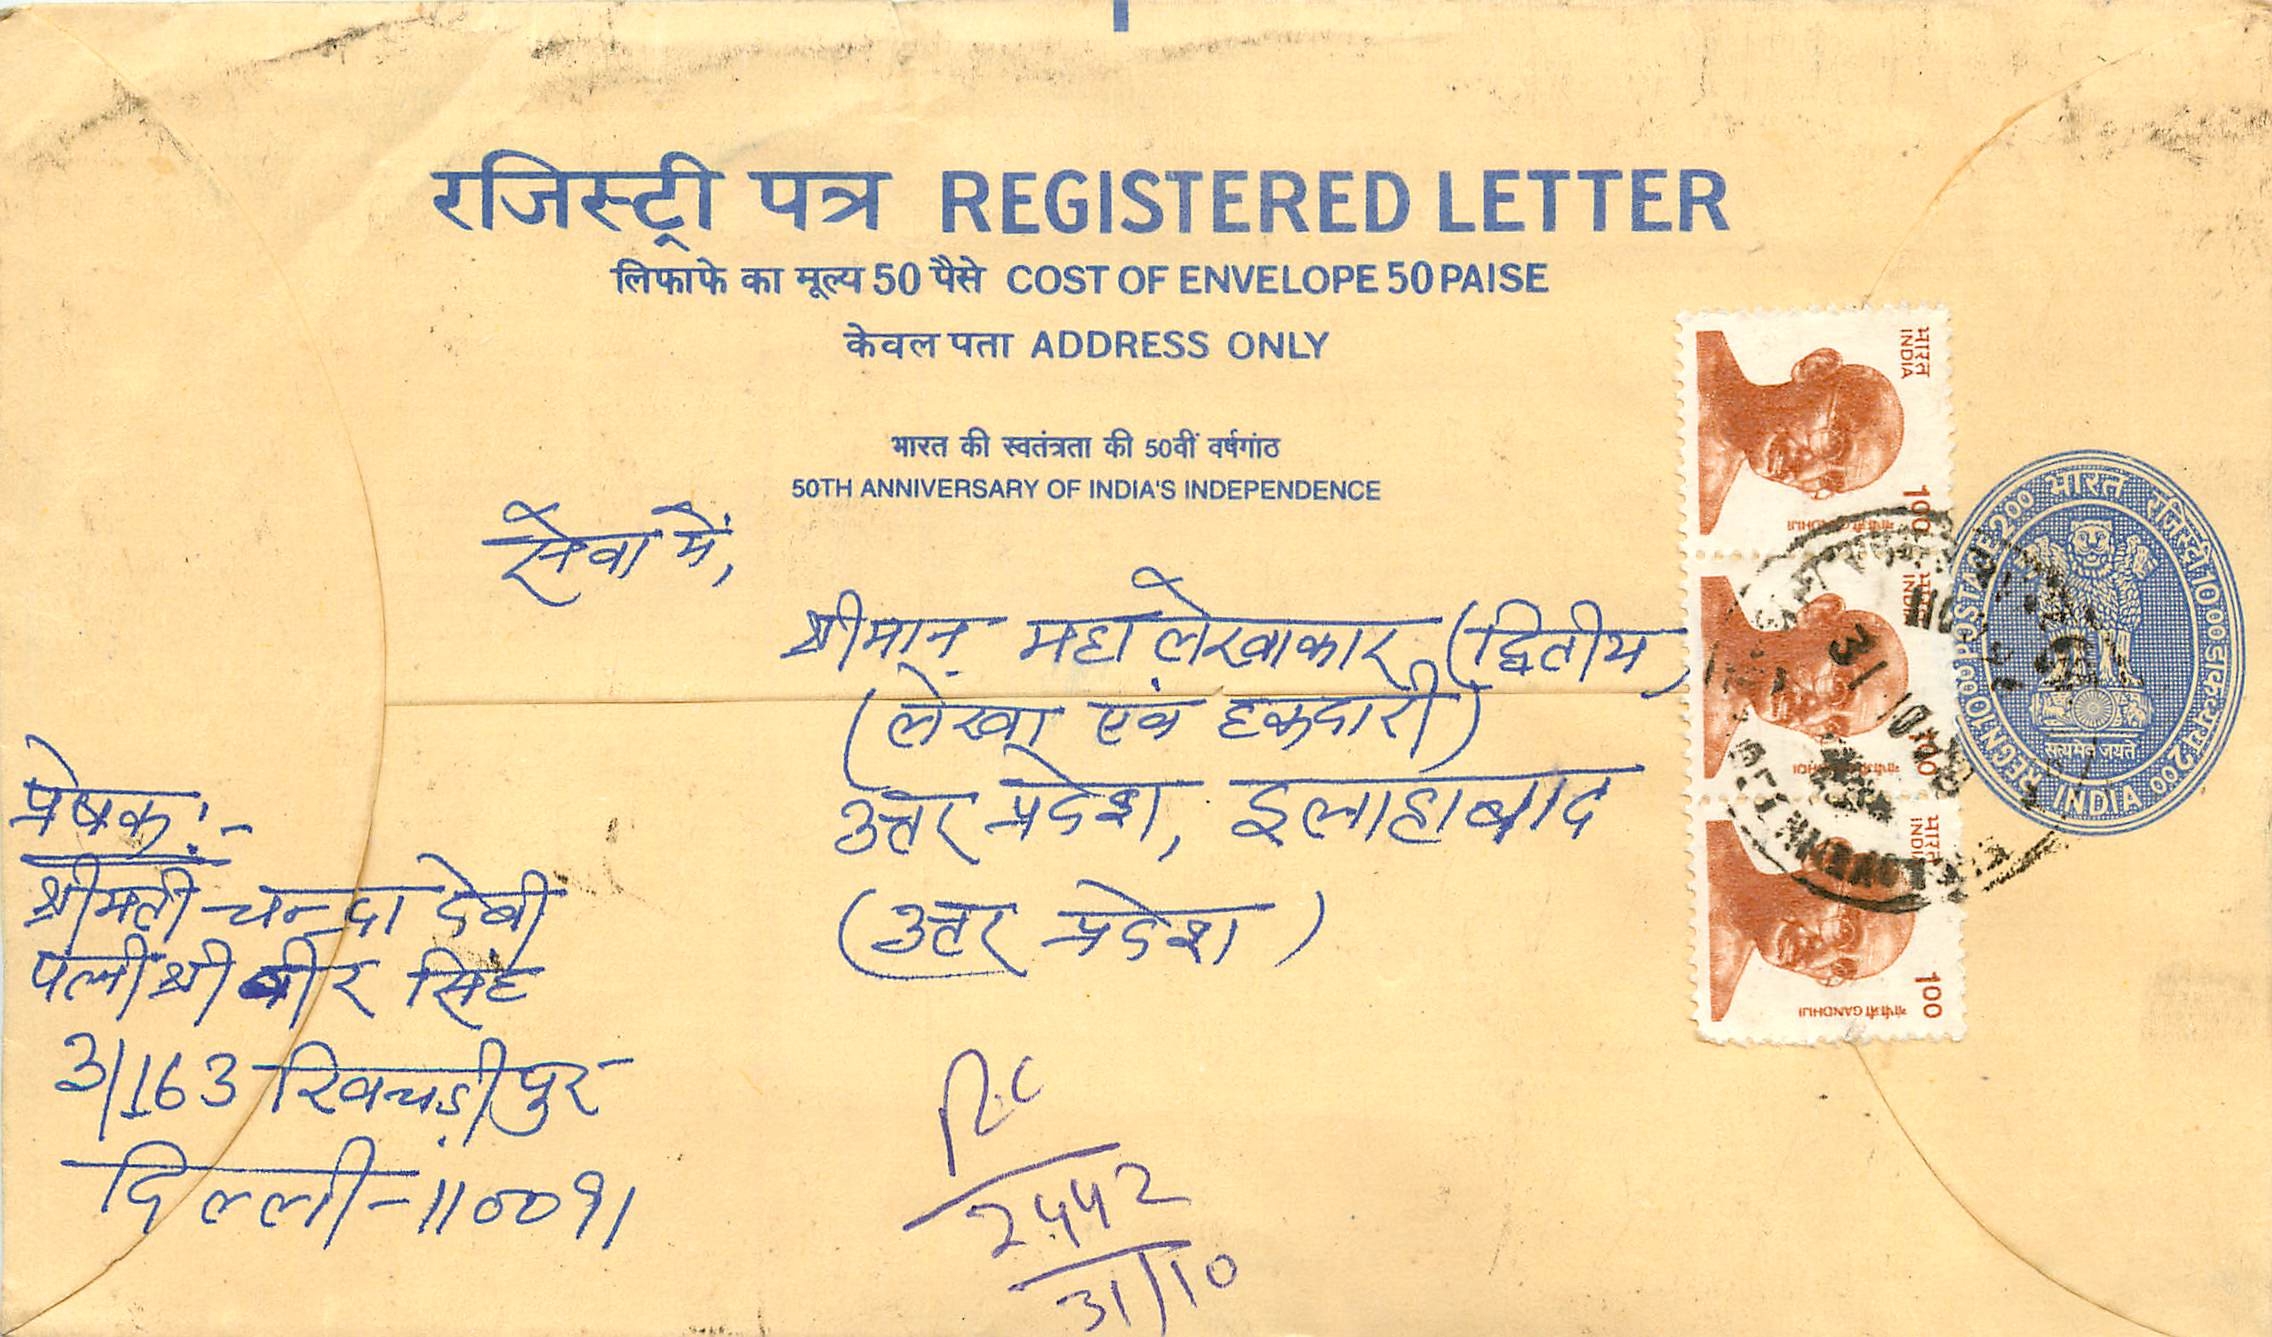 रजिस्ट्री पत्र REGISTERED LETTER
लिफाफे का मूल्य 50 पैसे COST OF ENVELOPE 50 PAISE
केवल पता ADDRESS ONLY
भारत की स्वतंत्रता की 50वीं वर्षगांठ
50TH ANNIVERSARY OF INDIA'S INDEPENDENCE
सेवा में,
श्रीमान् महालेखाकार (द्वितीय)
(लेखा एवं हकदारी)
उत्तर प्रदेश, इलाहाबाद
(उत्तर प्रदेश)
प्रेषक:-
श्रीमती चन्दा देवी
पत्नी श्री बीर सिंह
3/163 खिचड़ीपुर
दिल्ली-110091
2442
31/10
भारत INDIA
100
गांधीजी GANDHIJI
भारत INDIA
गांधीजी GANDHIJI
भारत INDIA
100
गांधीजी GANDHIJI
31 10
भारत रजिस्ट्री 1000 डाक मूल्य 200
INDIA
REGN 1000 POSTAGE 200
सत्यमेव जयते